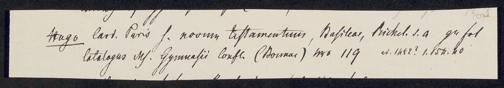 Hugo Card. Paris s. novum testamentum, Basileae, Richel. s. a gr fol
Catalogus Ms. Gymnasii Confl. (Bonnae) nro 119 ca. 1482?